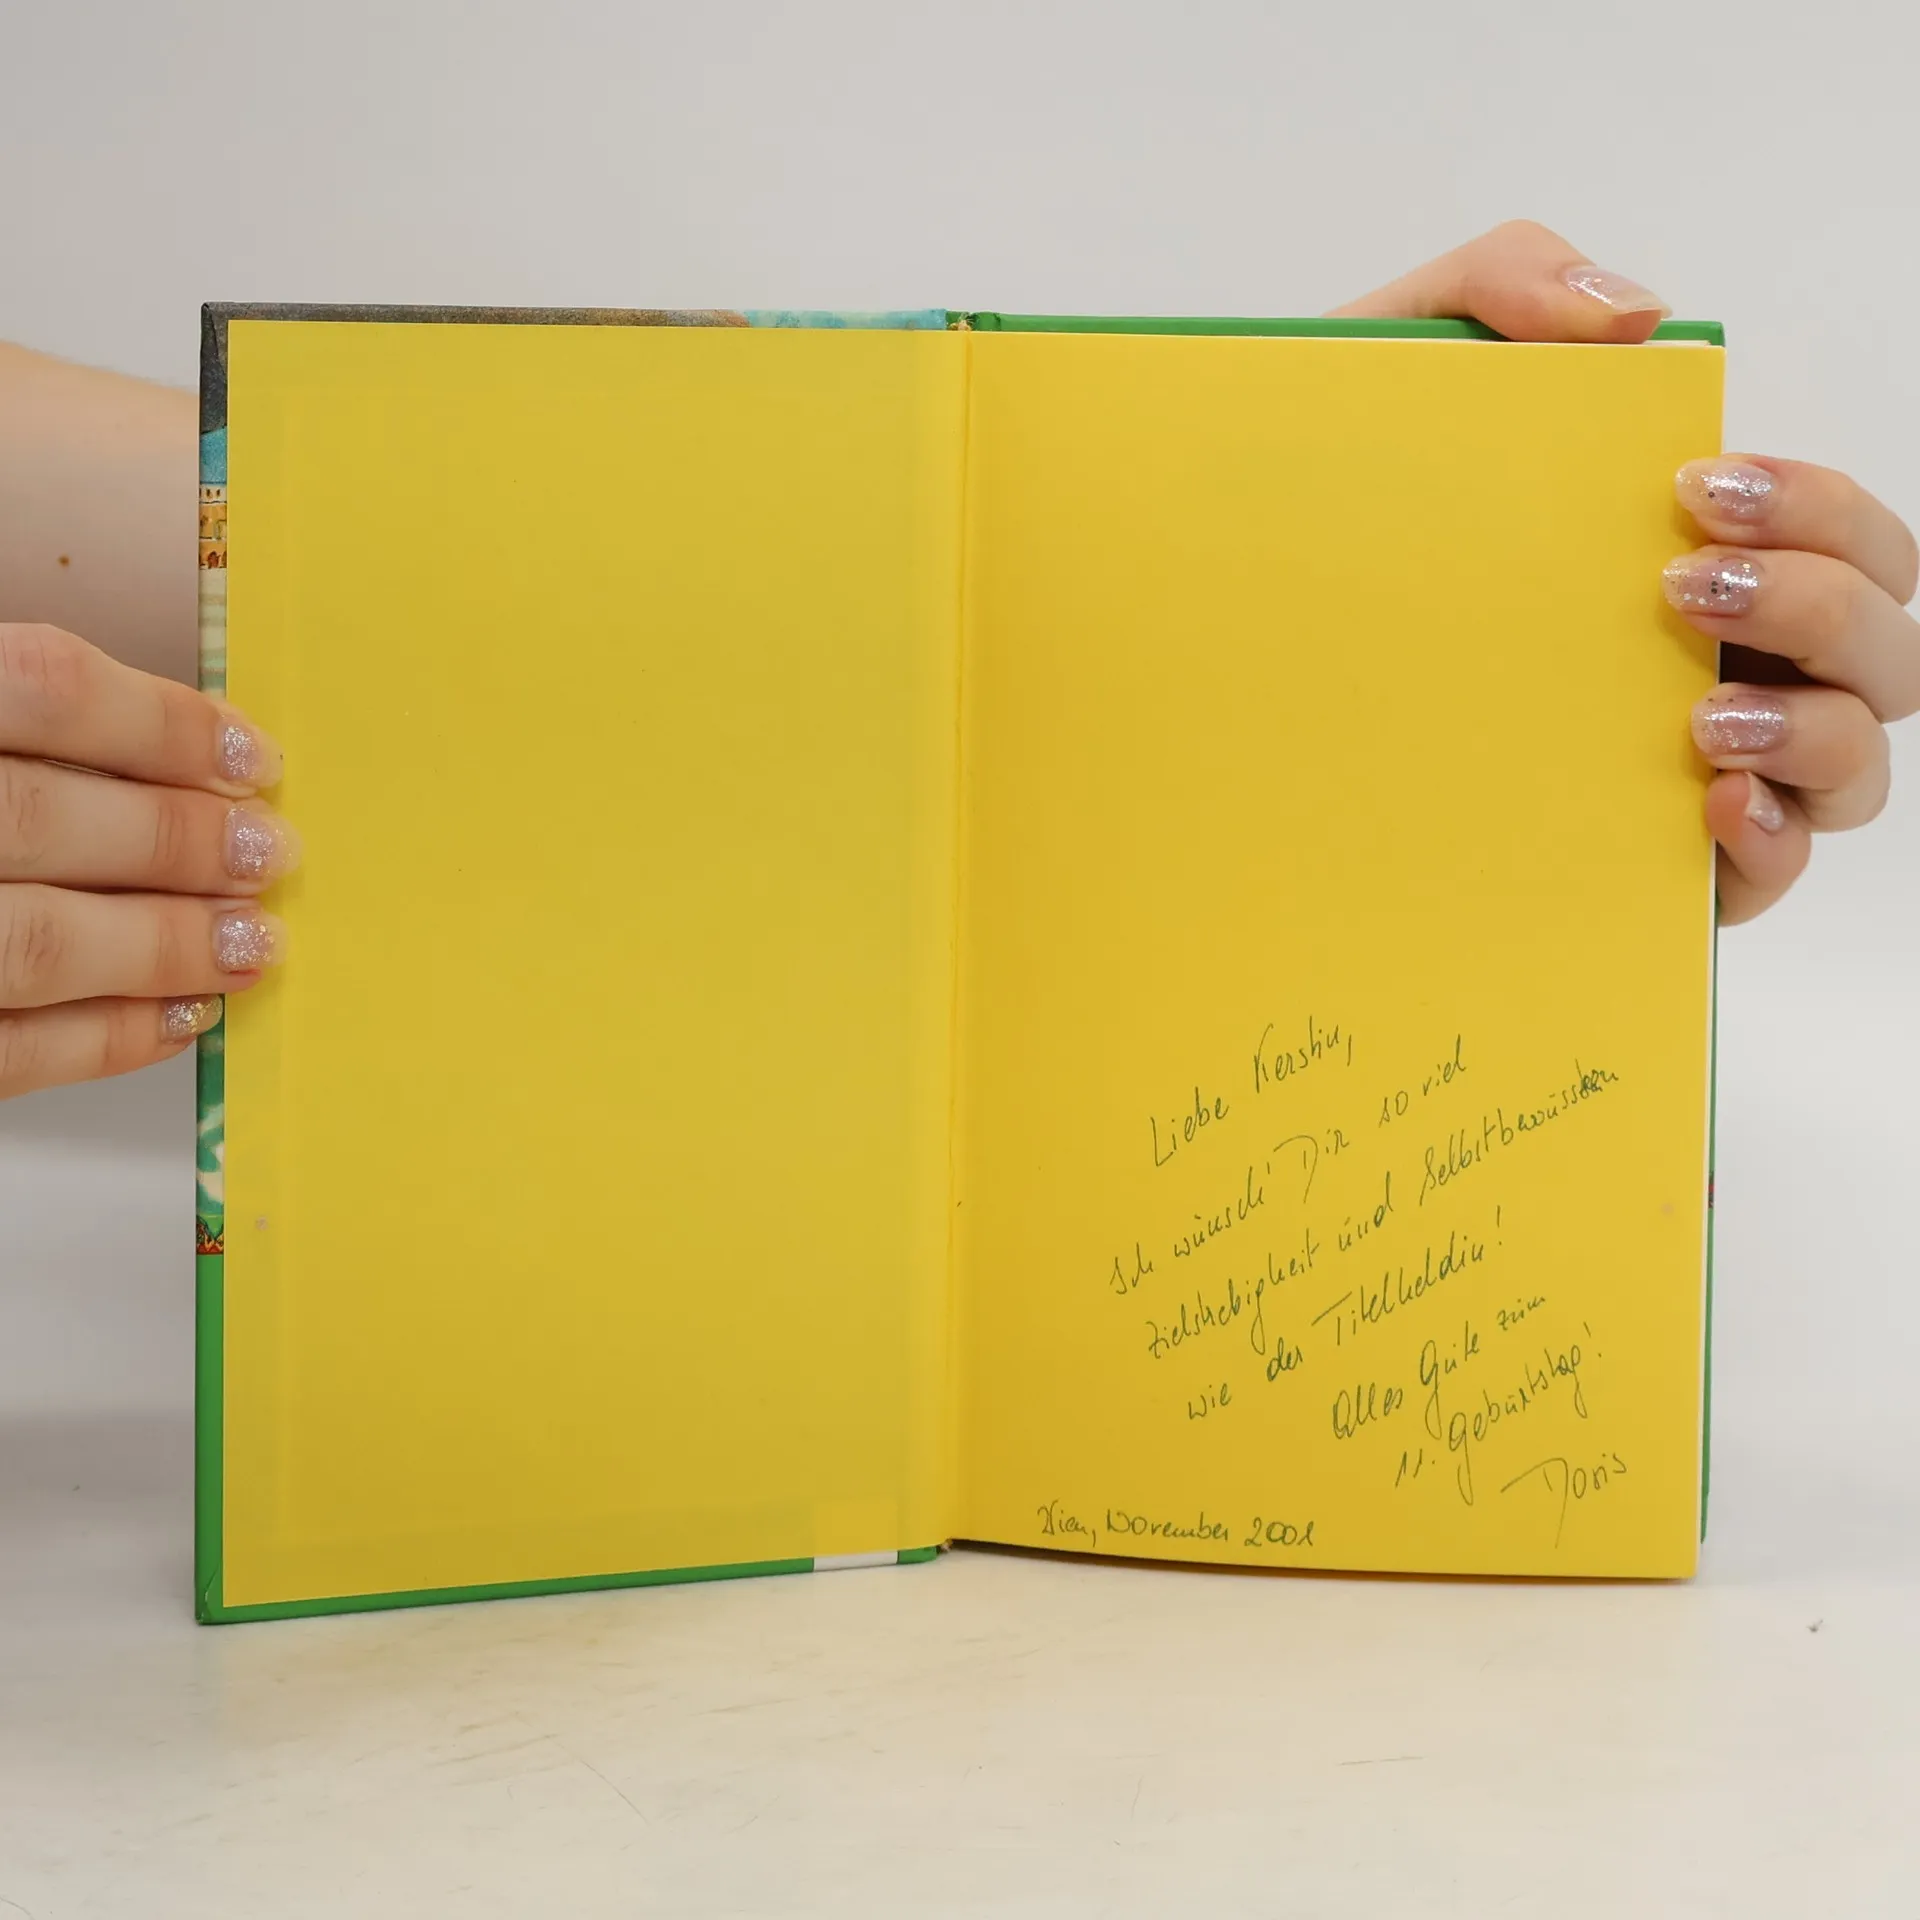 Liebe Kerstin,
Ich wünsch' Dir so viel
Zielstrebigkeit und Selbstbewusstsein
wie der Titelheldin!
Alles Gute zum
11. Geburtstag!
Doris
Wien, November 2001